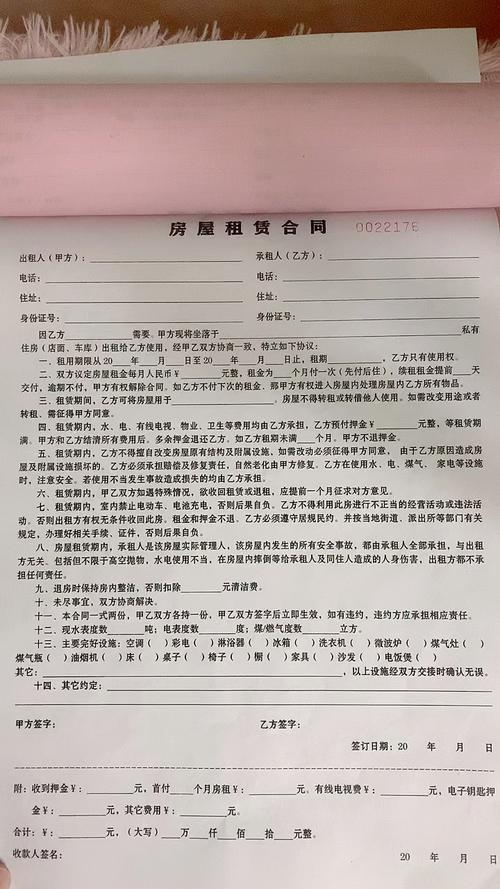 房屋租赁合同 0022176
出租人(甲方):________ 承租人(乙方):________
电话:________ 电话:________
住址:________ 住址:________
身份证号:________ 身份证号:________
因乙方________需要。甲方现将坐落于________私有
住房(店面、车库)出租给乙方使用,经甲乙双方协商一致,特立如下协议:
一、租用期限从20___年___月___日至20___年___月___日止,租期________,乙方只有使用权。
二、双方议定房屋租金每月人民币¥________元整,租金为____个月付一次(先付后住),续租租金提前____天
交付,逾期不付,甲方有权解除合同。如乙方不付下次的租金、那甲方有权进入房屋内处理房屋内乙方所有物品。
三、租赁期间,乙方可将房屋用于________。房屋不得转租或转借他人使用。如需改变用途或者
转租、需征得甲方同意。
四、租期内,水、电、有线电视、物业、卫生等费用均由乙方承担,乙方预付押金¥______元整,等租赁期
满。甲方和乙方结清所有费用后。多余押金退还乙方。如乙方租期未满____个月。甲方不退押金。
五、租期内,乙方不得擅自改变房屋原有结构及附属设施,如需改动必须征得甲方同意, 由于乙方原因造成房
屋及附属设施损坏的。乙方必须承担赔偿及修复责任,自然老化由甲方修复。乙方在使用水、电、煤气、 家电等设施
时,注意安全。若使用不当发生事故造成的损失均由乙方承担。
六、租赁期内,甲乙双方如遇特殊情况,欲收回租赁或退租,应提前一个月征求对方意见。
七、租赁期内,室内禁止电动车、电池充电,否则后果自负。乙方不得利用此房进行不正当的经营活动或违法活
动。否则出租方有权无条件收回此房。租金和押金不退、乙方必须遵守居规民约。并按当地街道、派出所等部门有关
规定,办理好相关手续、证件,否则后果自负。
八、房屋租赁期内,承租人是该房屋实际管理人,该房屋内发生的所有安全事故,都由承租人全部承担,与出租
方无关。包括但不限于高空抛物,水电使用不当,在房屋内摔倒等给承租人及同住人造成的人身伤害,出租方都不承
担任何责任。
九、退房时保持房内整洁,否则扣除______元清洁费。
十、未尽事宜,双方协商解决。
十一、本合同一式两份,甲乙双方各持一份,甲乙双方签字后立即生效,如有违约,违约方应承担相应责任。
十二、现水表度数______吨;电表度数______度;煤/燃气度数______立方。
十三、主要完好设施:空调( )彩电( )淋浴器( )冰箱( )洗衣机( )微波炉( )煤气灶( )
煤气瓶( )油烟机( )床( )桌子( )椅子( )橱( )家具( )沙发( )电饭煲( )
其它:________,以上设施经双方交接时确认无误。
十四、其它约定:________
甲方签字: 乙方签字:
签订日期:20 年 月 日
附:收到押金¥:______元,首付____个月房租¥:______元。有线电视费¥:______元,电子钥匙押
金¥:______元,其它费用¥:______元。
合计:¥:______元,(大写)___万___仟___佰___拾___元整。
收款人签名: 20 年 月 日